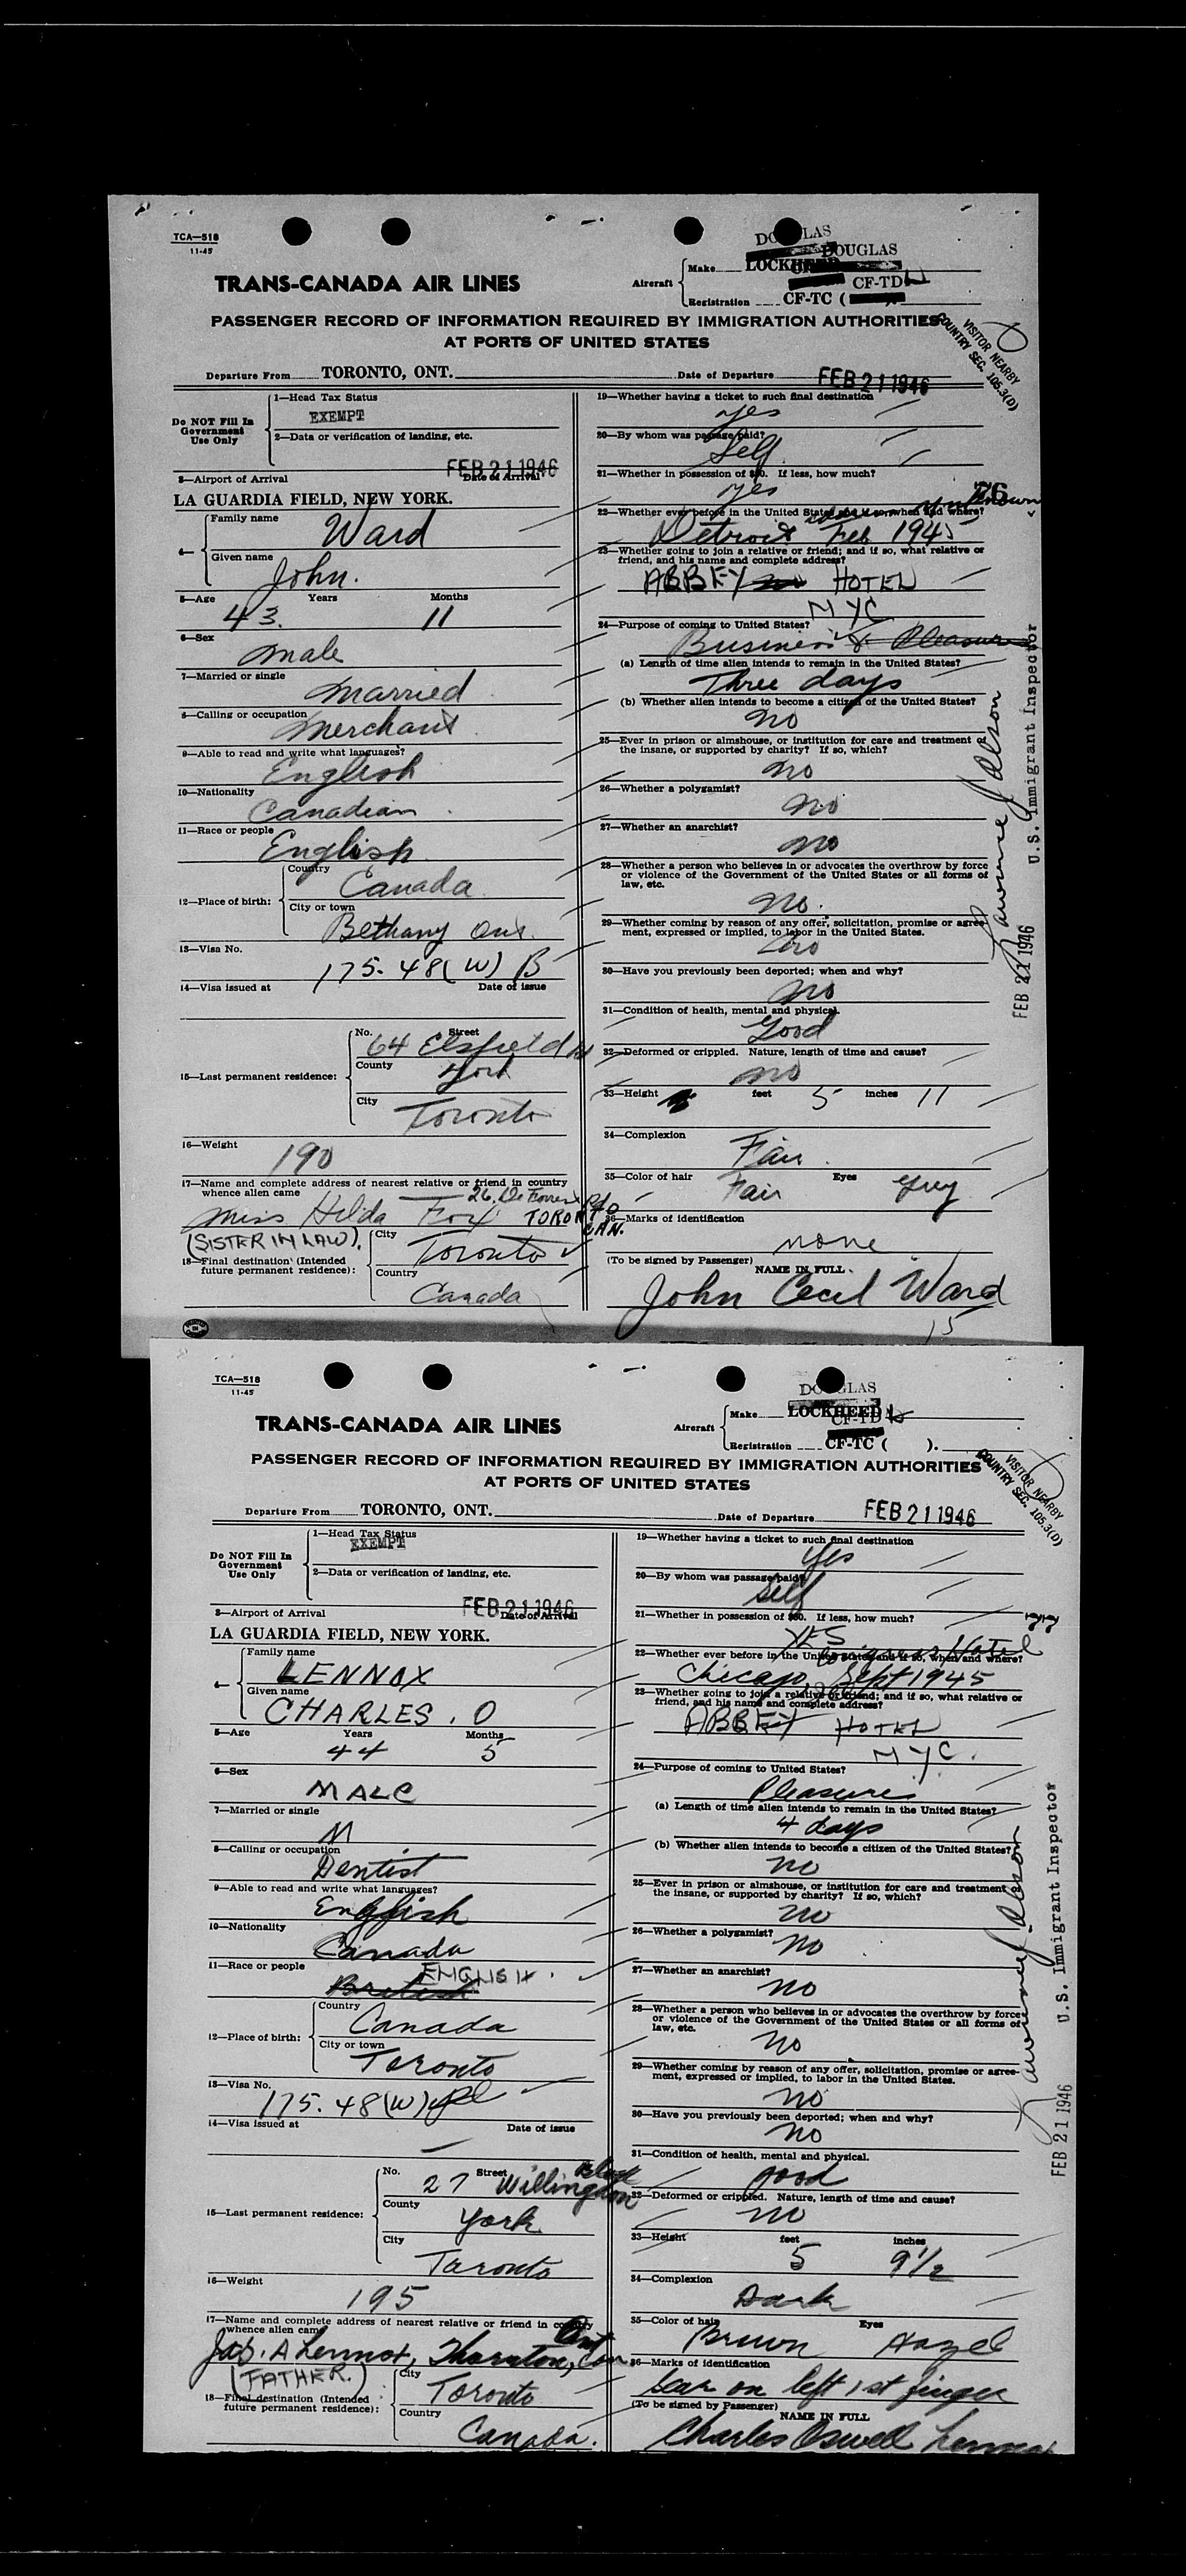 TCA—518
11-45
DOUGLAS
DOUGLAS
TRANS-CANADA AIR LINES
Aircraft
Make LOCKHEED
CF-TD
Registration CF-TC (
PASSENGER RECORD OF INFORMATION REQUIRED BY IMMIGRATION AUTHORITIES
AT PORTS OF UNITED STATES
VISITOR NEARBY
COUNTRY SEC. 105.3(D)
Departure From TORONTO, ONT. Date of Departure FEB 21 1946
Do NOT Fill In Government Use Only
1—Head Tax Status
EXEMPT
2—Data or verification of landing, etc.
FEB 21 1946
3—Airport of Arrival Date of Arrival
LA GUARDIA FIELD, NEW YORK.
4—
Family name Ward
Given name John.
5—Age Years Months
43. 11
6—Sex
male
7—Married or single
married
8—Calling or occupation
merchant
9—Able to read and write what languages?
English
10—Nationality
Canadian
11—Race or people
English
12—Place of birth:
Country
Canada
City or town
Bethany Ont.
13—Visa No.
175.48(W) B
14—Visa issued at Date of issue
15—Last permanent residence:
No. Street
64 Elsfield Rd
County
York
City
Toronto
16—Weight
190
17—Name and complete address of nearest relative or friend in country
whence alien came
26
Miss Hilda Fox TORONTO
CAN.
(SISTER IN LAW).
18—Final destination (Intended
future permanent residence):
City
Toronto
Country
Canada
19—Whether having a ticket to such final destination
yes
20—By whom was passage paid?
Self
21—Whether in possession of $50. If less, how much?
yes
76
unknown
22—Whether ever before in the United States and if so, when and where?
Detroit Feb 1945
23—Whether going to join a relative or friend; and if so, what relative or
friend, and his name and complete address?
ABBEY HOTEL
NYC
24—Purpose of coming to United States?
Business & Pleasure
(a) Length of time alien intends to remain in the United States?
Three days
(b) Whether alien intends to become a citizen of the United States?
no
25—Ever in prison or almshouse, or institution for care and treatment of
the insane, or supported by charity? If so, which?
no
26—Whether a polygamist?
no
27—Whether an anarchist?
no
28—Whether a person who believes in or advocates the overthrow by force
or violence of the Government of the United States or all forms of
law, etc.
no.
29—Whether coming by reason of any offer, solicitation, promise or agree-
ment, expressed or implied, to labor in the United States.
no
30—Have you previously been deported; when and why?
no
31—Condition of health, mental and physical.
Good
32—Deformed or crippled. Nature, length of time and cause?
no
33—Height feet 5 inches 11
34—Complexion
Fair
35—Color of hair Eyes
Fair Grey
36—Marks of identification
none
(To be signed by Passenger)
NAME IN FULL
John Cecil Ward
15
FEB 21 1946 U.S. Immigrant Inspector
TCA—518
11-45
DOUGLAS
TRANS-CANADA AIR LINES
Aircraft
Make LOCKHEED
CF-TD
Registration CF-TC ( ).
PASSENGER RECORD OF INFORMATION REQUIRED BY IMMIGRATION AUTHORITIES
AT PORTS OF UNITED STATES
VISITOR NEARBY
COUNTRY SEC. 105.3(D)
Departure From TORONTO, ONT. Date of Departure FEB 21 1946
Do NOT Fill In Government Use Only
1—Head Tax Status
EXEMPT
2—Data or verification of landing, etc.
FEB 21 1946
3—Airport of Arrival Date of Arrival
LA GUARDIA FIELD, NEW YORK.
4—
Family name
LENNOX
Given name
CHARLES. O
5—Age Years Months
44 5
6—Sex
MALE
7—Married or single
M
8—Calling or occupation
Dentist
9—Able to read and write what languages?
English
10—Nationality
Canada
11—Race or people ENGLISH.
British
12—Place of birth:
Country
Canada
City or town
Toronto
13—Visa No.
175.48(W)
14—Visa issued at Date of issue
15—Last permanent residence:
No. Street
27 Willingdon Blvd
County
York
City
Toronto
16—Weight
195
17—Name and complete address of nearest relative or friend in country
whence alien came
Jas. A Lennox, Thornton, Ont Can
(FATHER.)
18—Final destination (Intended
future permanent residence):
City
Toronto
Country
Canada.
19—Whether having a ticket to such final destination
yes
20—By whom was passage paid?
Self
21—Whether in possession of $60. If less, how much?
YES
Hotel
22—Whether ever before in the United States and if so, when and where?
Chicago Sept 1945
23—Whether going to join a relative or friend; and if so, what relative or
friend, and his name and complete address?
ABBEY HOTEL
NYC.
24—Purpose of coming to United States?
Pleasure
(a) Length of time alien intends to remain in the United States?
4 days
(b) Whether alien intends to become a citizen of the United States?
no
25—Ever in prison or almshouse, or institution for care and treatment of
the insane, or supported by charity? If so, which?
no
26—Whether a polygamist?
no
27—Whether an anarchist?
no
28—Whether a person who believes in or advocates the overthrow by force
or violence of the Government of the United States or all forms of
law, etc.
no
29—Whether coming by reason of any offer, solicitation, promise or agree-
ment, expressed or implied, to labor in the United States.
no
30—Have you previously been deported; when and why?
no
31—Condition of health, mental and physical.
good
32—Deformed or crippled. Nature, length of time and cause?
no
33—Height feet inches
5 9 1/2
34—Complexion
Dark
35—Color of hair Eyes
Brown Hazel
36—Marks of identification
Scar on left 1st finger
(To be signed by Passenger)
NAME IN FULL
Charles Oswell Lennox
FEB 21 1946 U.S. Immigrant Inspector